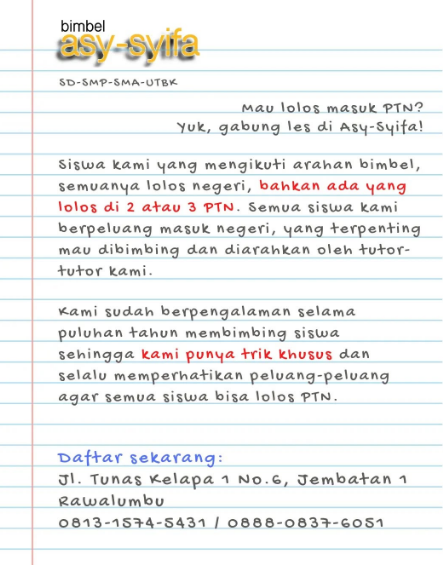 bimbel
asy-syifa
SD-SMP-SMA-UTBK
Mau lolos masuk PTN?
Yuk, gabung les di Asy-Syifa!
Siswa kami yang mengikuti arahan bimbel,
semuanya lolos negeri, bahkan ada yang
lolos di 2 atau 3 PTN. Semua siswa kami
berpeluang masuk negeri, yang terpenting
mau dibimbing dan diarahkan oleh tutor-
tutor kami.
Kami sudah berpengalaman selama
puluhan tahun membimbing siswa
sehingga kami punya trik khusus dan
selalu memperhatikan peluang-peluang
agar semua siswa bisa lolos PTN.
Daftar sekarang:
Jl. Tunas Kelapa 1 No.6, Jembatan 1
Rawalumbu
0813-1574-5431 / 0888-0837-6051